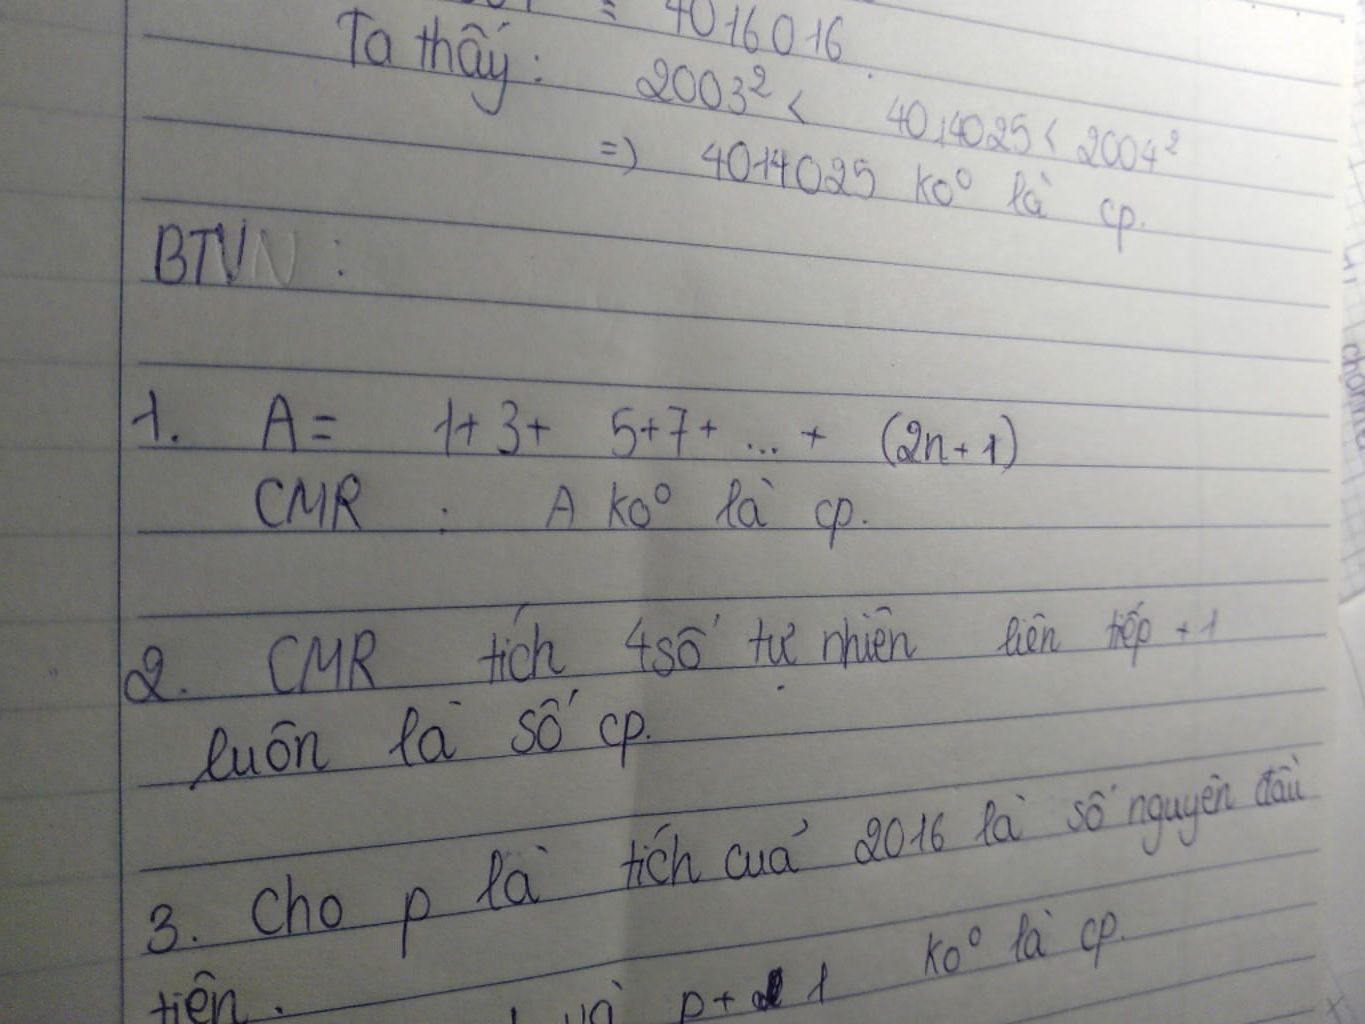 = 4016016
Ta thấy: 2003² < 4014025 < 2004²
=) 4014025 ko⁰ là cp.
BTVN :
1. A = 1+3+ 5+7+ ... + (2n+1)
CMR : A ko⁰ là cp.
2. CMR tích 4 số tự nhiên liên tiếp +1
luôn là số cp.
3. Cho p là tích cuả 2016 là số nguyên đầu
tiên.
và p+1 ko⁰ là cp.